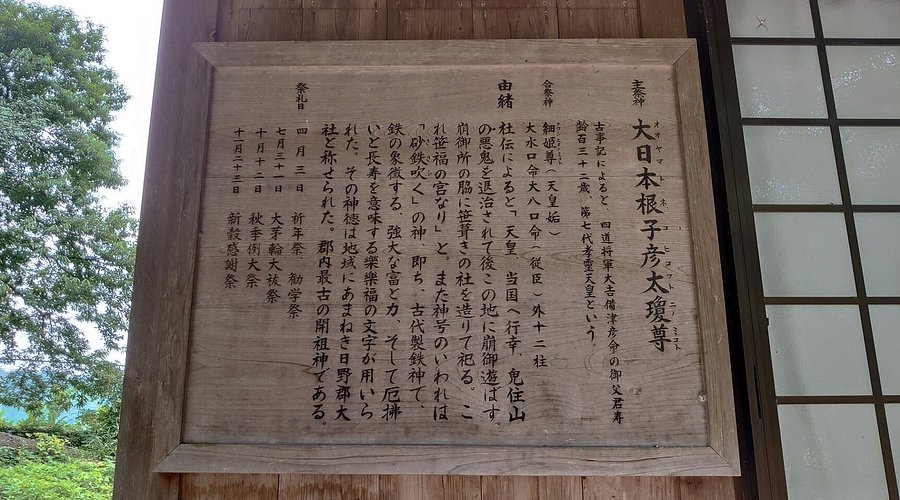 主祭神 大日本根子彦太瓊尊
オオヤマトネコヒコフトニノミコト
古事記によると、四道将軍大吉備津彦命の御父君寿
齢百三十二歳、第七代孝霊天皇という。
合祭神 細姫尊(天皇妃)
大水口命大八口命(従臣)外十二柱
由緒 社伝によると「天皇 当国へ行幸、鬼住山
の悪鬼を退治されて後この地に崩御遊ばす。
崩御所の脇に笹葺きの社を造りて祀る。こ
れ笹福の宮なり」と。また神号のいわれは
「砂鉄吹く」の神、即ち、古代製鉄神で、
鉄の象徴する、強大な富と力、そして厄拂
いと長寿を意味する樂樂福の文字が用いら
れた。その神徳は地域にあまねき日野郡大
社と称せられた。郡内最古の開祖神である。
祭礼日 四月三日 祈年祭 勧学祭
七月三十一日 大茅輪大祓祭
十月十二日 秋季例大祭
十一月二十三日 新穀感謝祭